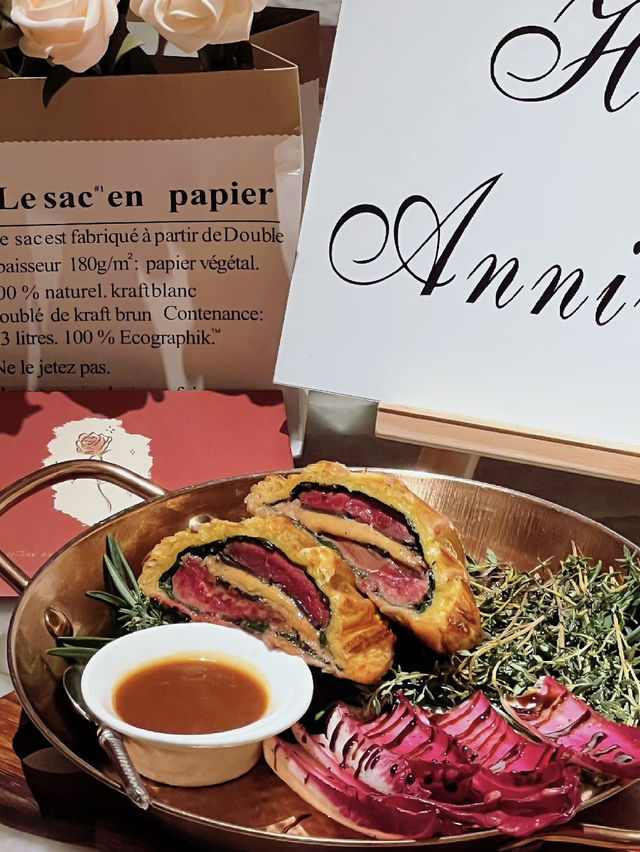 Le sac#1 en papier
e sac est fabriqué à partir de Double
paisseur 180g/m²: papier végétal.
00 % naturel. kraft blanc
oublé de kraft brun Contenance:
3 litres. 100 % Ecographik.™
Ne le jetez pas.
H
Anni